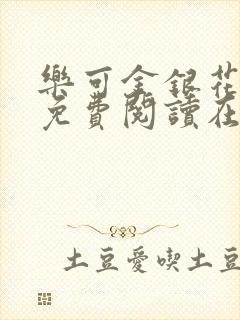 樂可金銀花
免費閱讀在
土豆愛喫土豆